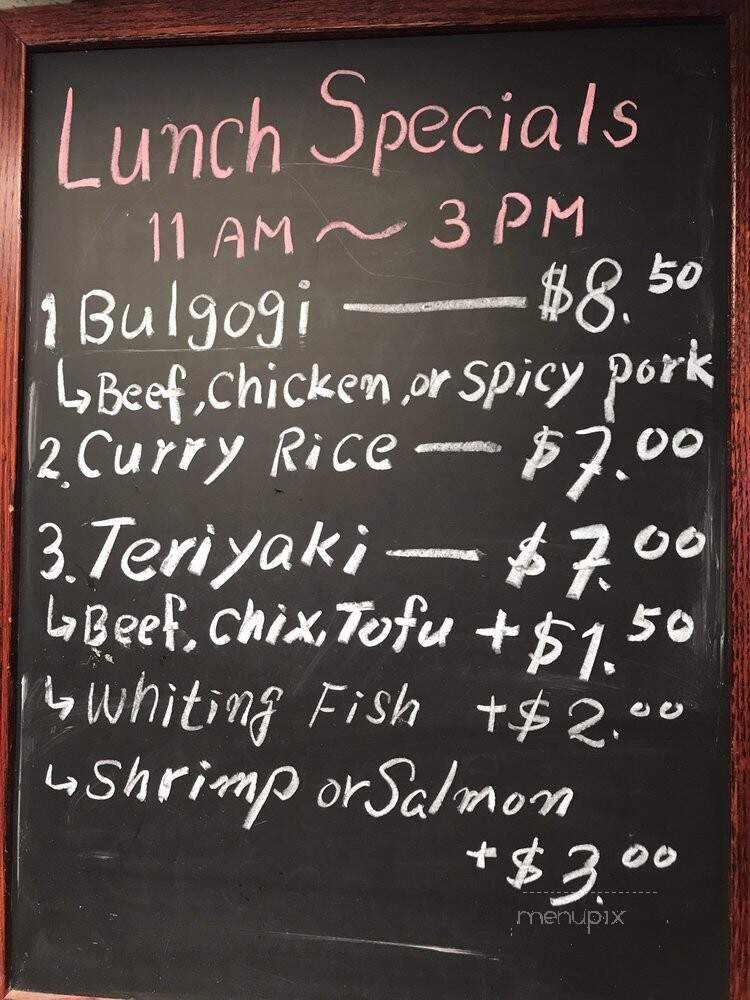 Lunch Specials
11 AM ~ 3 PM
1 Bulgogi — $8.50
↳Beef, Chicken, or spicy pork
2. Curry Rice — $7.00
3. Teriyaki — $7.00
↳Beef, Chix, Tofu +$1.50
↳Whiting Fish +$2.00
↳Shrimp or Salmon
+$3.00
menupix